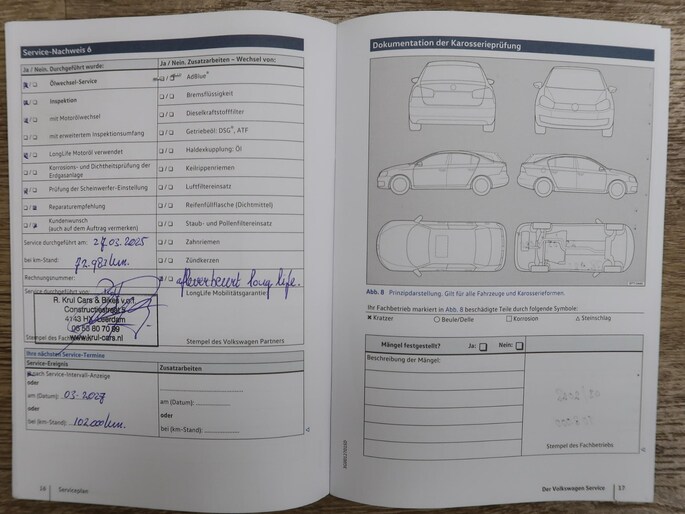 Service-Nachweis 6
Ja / Nein. Durchgeführt wurde:
Ölwechsel-Service
Inspektion
mit Motorölwechsel
mit erweitertem Inspektionsumfang
LongLife Motoröl verwendet
Korrosions- und Dichtheitsprüfung der
Erdgasanlage
Prüfung der Scheinwerfer-Einstellung
Reparaturempfehlung
Kundenwunsch
(auch auf dem Auftrag vermerken)
Service durchgeführt am: 27.03.2025
bei km-Stand: 72.982 km.
Rechnungsnummer:
Service durchgeführt von:
R. Krul Cars & Bikes v.o.f
Constructiestraat
4143 HX Leerdam
www.krul-cars.nl
Stempel des
Ja / Nein. Zusatzarbeiten – Wechsel von:
AdBlue®
Bremsflüssigkeit
Dieselkraftstofffilter
Getriebeöl: DSG®, ATF
Haldexkupplung: Öl
Keilrippenriemen
Luftfiltereinsatz
Reifenfüllflasche (Dichtmittel)
Staub- und Pollenfiltereinsatz
Zahnriemen
Zündkerzen
long life.
LongLife Mobilitätsgarantie
Stempel des Volkswagen Partners
Ihre nächsten Service-Termine
Service-Ereignis
nach Service-Intervall-Anzeige
oder
am (Datum): 03-2027
oder
bei (km-Stand): 102000 km.
Zusatzarbeiten
am (Datum):
oder
bei (km-Stand):
16 Serviceplan
Dokumentation der Karosserieprüfung
Abb. 8 Prinzipdarstellung, Gilt für alle Fahrzeuge und Karosserieformen.
Ihr Fachbetrieb markiert in Abb. 8 beschädigte Teile durch folgende Symbole:
× Kratzer ○ Beule/Delle □ Korrosion △ Steinschlag
Mängel festgestellt? Ja: Nein:
Beschreibung der Mängel:
Stempel des Fachbetriebs
Der Volkswagen Service 17